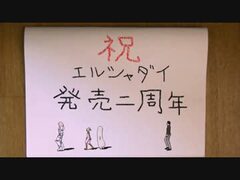 祝
エルシャダイ
発売二周年